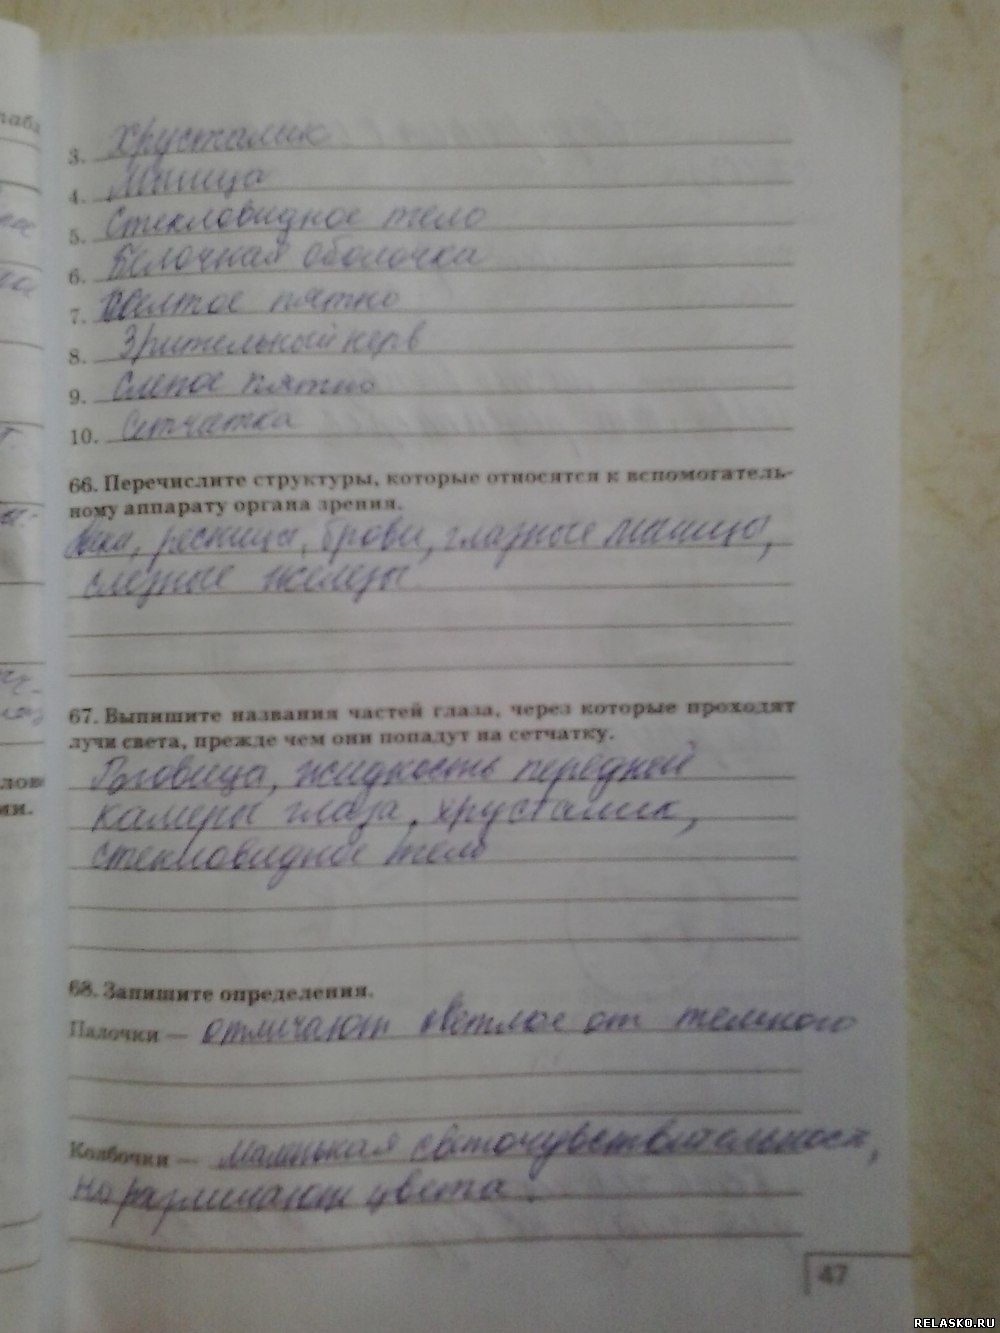 3. Хрусталик
4. Мышца
5. Стекловидное тело
6. Белочная оболочка
7. Желтое пятно
8. Зрительный нерв
9. Слепое пятно
10. Сетчатка
66. Перечислите структуры, которые относятся к вспомогатель-
ному аппарату органа зрения.
Веки, ресницы, брови, глазные мышцы,
слезные железы.
67. Выпишите названия частей глаза, через которые проходят
лучи света, прежде чем они попадут на сетчатку.
Роговица, жидкость передней
камеры глаза, хрусталик,
стекловидное тело
68. Запишите определения.
Палочки — отличают светлое от темного
Колбочки — маленькая светочувствительност,
но различают цвета.
47
RELASKO.RU